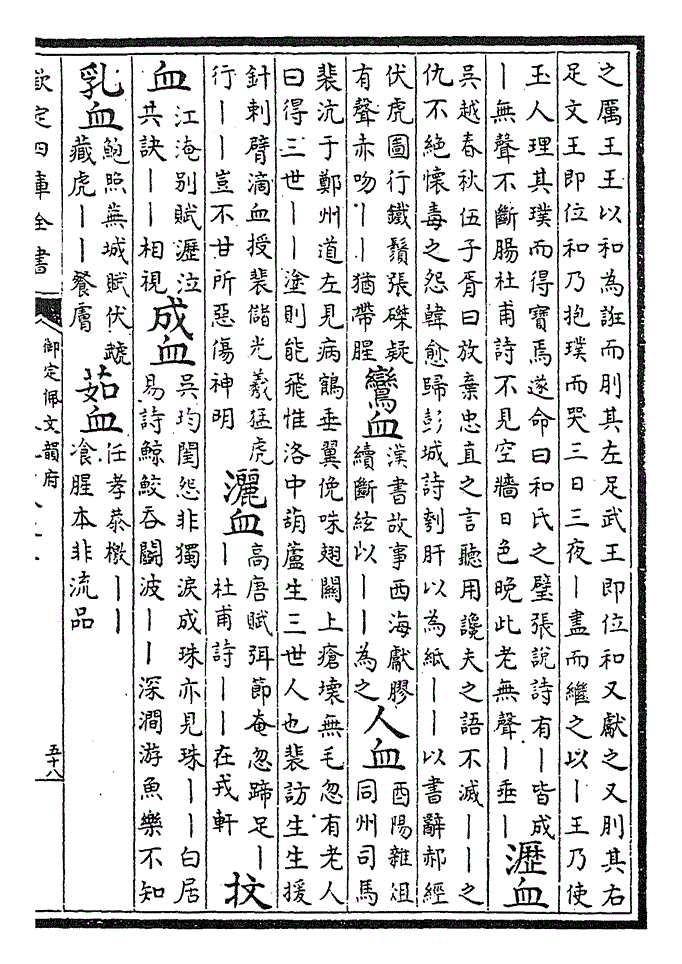 之厲王王以和為誑而刖其左足武王即位和又獻之又刖其右
足文王即位和乃抱璞而哭三日三夜丨盡而繼之以丨王乃使
玉人理其璞而得寶焉遂命曰和氏之璧張說詩有丨皆成
丨無聲不斷腸杜甫詩不見空牆日色晚此老無聲丨垂丨
瀝血
吳越春秋伍子胥曰放棄忠直之言聽用讒夫之語不滅丨丨之
仇不絕懷毒之怨韓愈歸彭城詩刳肝以為紙丨丨以書辭郝經
伏虎圖行鐵鬚張磔疑
有聲赤吻丨丨猶帶腥
鸞血
漢書故事西海獻膠
續斷絃以丨丨為之
人血
酉陽雜俎
同州司馬
裴沆于鄭州道左見病鶴垂翼俛咮翅關上瘡壞無毛忽有老人
曰得三世丨丨塗則能飛惟洛中葫蘆生三世人也裴訪生生援
針刺臂滴血授裴儲光羲猛虎
行丨丨豈不甘所惡傷神明
灑血
高唐賦弭節奄忽蹄足丨
丨杜甫詩丨丨在戎軒
抆
血
江淹別賦瀝泣
共訣丨丨相視
成血
吳均閨怨非獨淚成珠亦見珠丨丨白居
易詩鯨鮫吞鬭波丨丨深澗游魚樂不知
乳血
鮑照蕪城賦伏虣
藏虎丨丨餐膚
茹血
任孝恭檄丨丨
飡腥本非流品
欽定四庫全書
御定佩文韻府
五十八